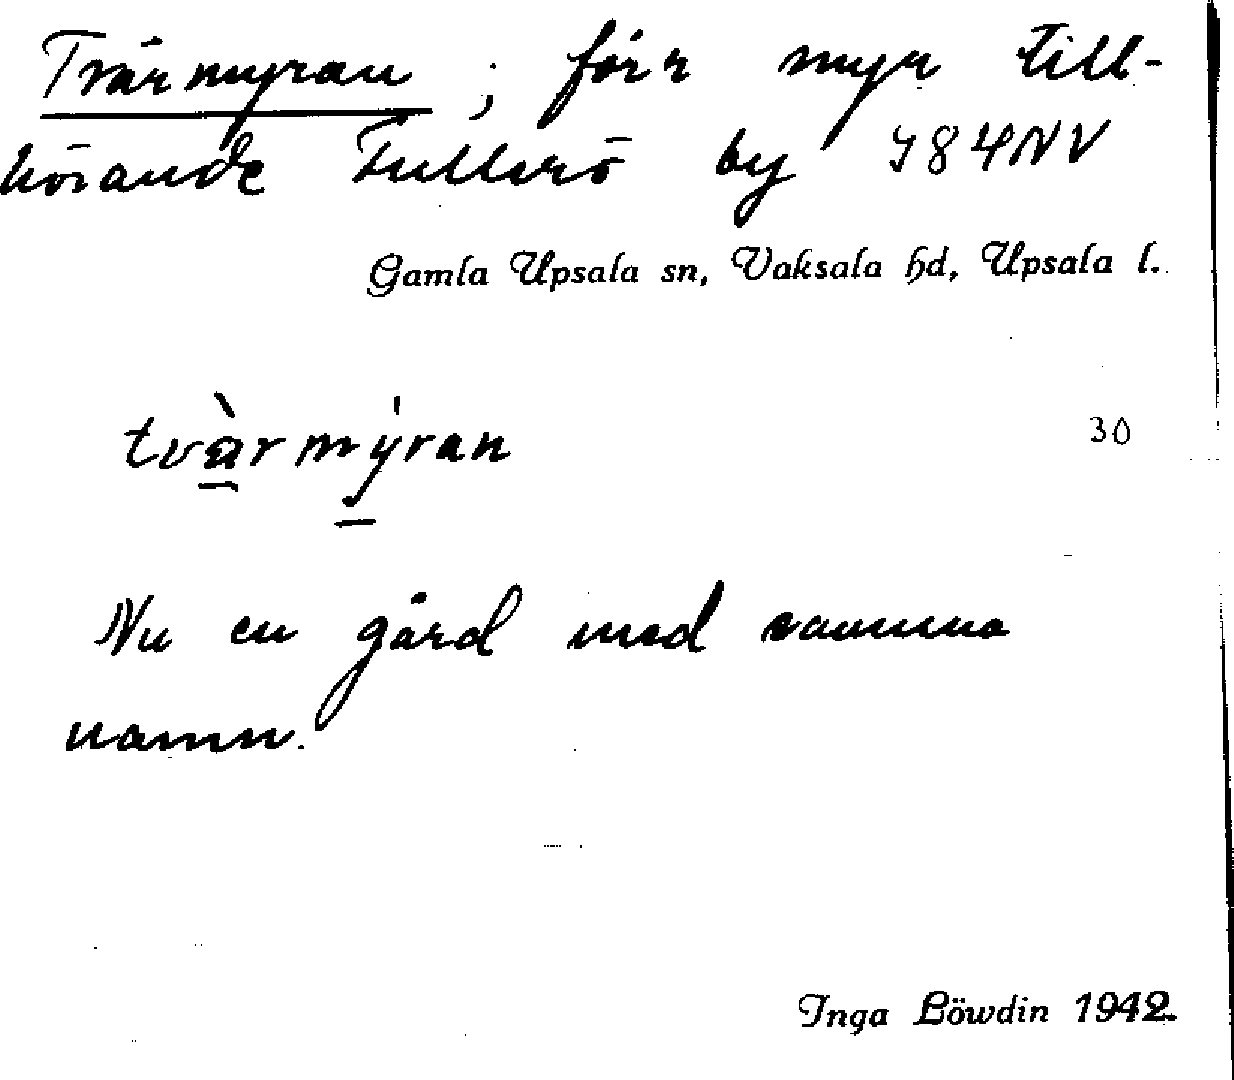 Tvärmyran ; förr myr till-
hörande Fullerö by 784NV
Gamla Upsala sn, Vaksala hd, Upsala l.
tvàrmýran
30
Nu en gård med samma
namn.
Inga Löwdin 1942.